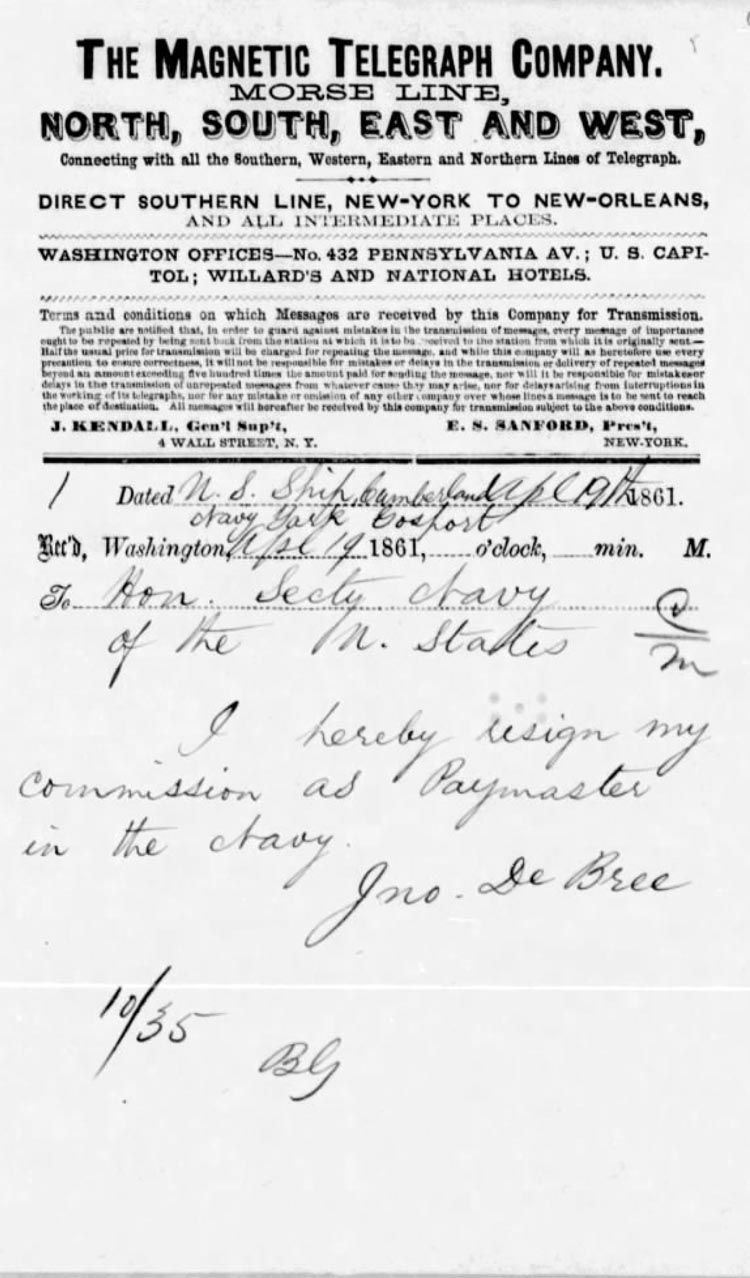 THE MAGNETIC TELEGRAPH COMPANY.
MORSE LINE,
NORTH, SOUTH, EAST AND WEST,
Connecting with all the Southern, Western, Eastern and Northern Lines of Telegraph.
DIRECT SOUTHERN LINE, NEW-YORK TO NEW-ORLEANS,
AND ALL INTERMEDIATE PLACES.
WASHINGTON OFFICES—No. 432 PENNSYLVANIA AV.; U. S. CAPI-
TOL; WILLARD'S AND NATIONAL HOTELS.
Terms and conditions on which Messages are received by this Company for Transmission.
The public are notified that, in order to guard against mistakes in the transmission of messages, every message of importance
ought to be repeated by being sent back from the station at which it is to be received to the station from which it is originally sent.—
Half the usual price for transmission will be charged for repeating the message, and while this company will as heretofore use every
precaution to ensure correctness, it will not be responsible for mistakes or delays in the transmission or delivery of repeated messages
beyond an amount exceeding five hundred times the amount paid for sending the message, nor will it be responsible for mistakes or
delays in the transmission of unrepeated messages from whatever cause they may arise, nor for delays arising from interruptions in
the working of its telegraphs, nor for any mistake or omission of any other company over whose lines a message is to be sent to reach
the place of destination. All messages will hereafter be received by this company for transmission subject to the above conditions.
J. KENDALL, Gen'l Sup't, E. S. SANFORD, Pres't,
4 WALL STREET, N. Y. NEW-YORK.
1 Dated U. S. Ship Cumberland Apl 19th 1861.
Navy Yark Gosport
Rec'd, Washington, Apl 19 1861, o'clock, min. M.
To Hon. Secty Navy
of the U. States
I hereby resign my
commission as Paymaster
in the Navy.
Jno. De Bree
10/35